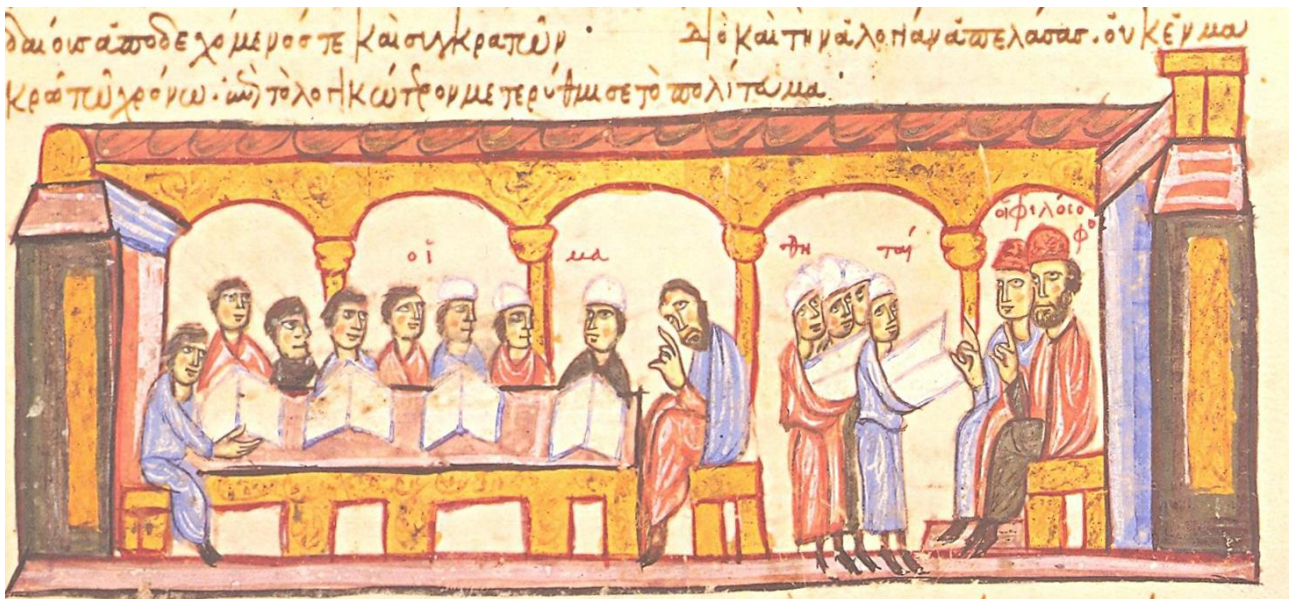 δαίοις ἀποδεχόμενός τε καὶ συγκροτῶν · Διὸ καὶ τὴν ἀλογίαν ἀπελάσας. οὐκ ἐν μα
κρῶ τῶ χρόνω. ἐπὶ τὸ λογικώτερον μετερύθμισε τὸ πολίτευμα.
οἱ φιλόσο
φο
οἱ μα θη ταί